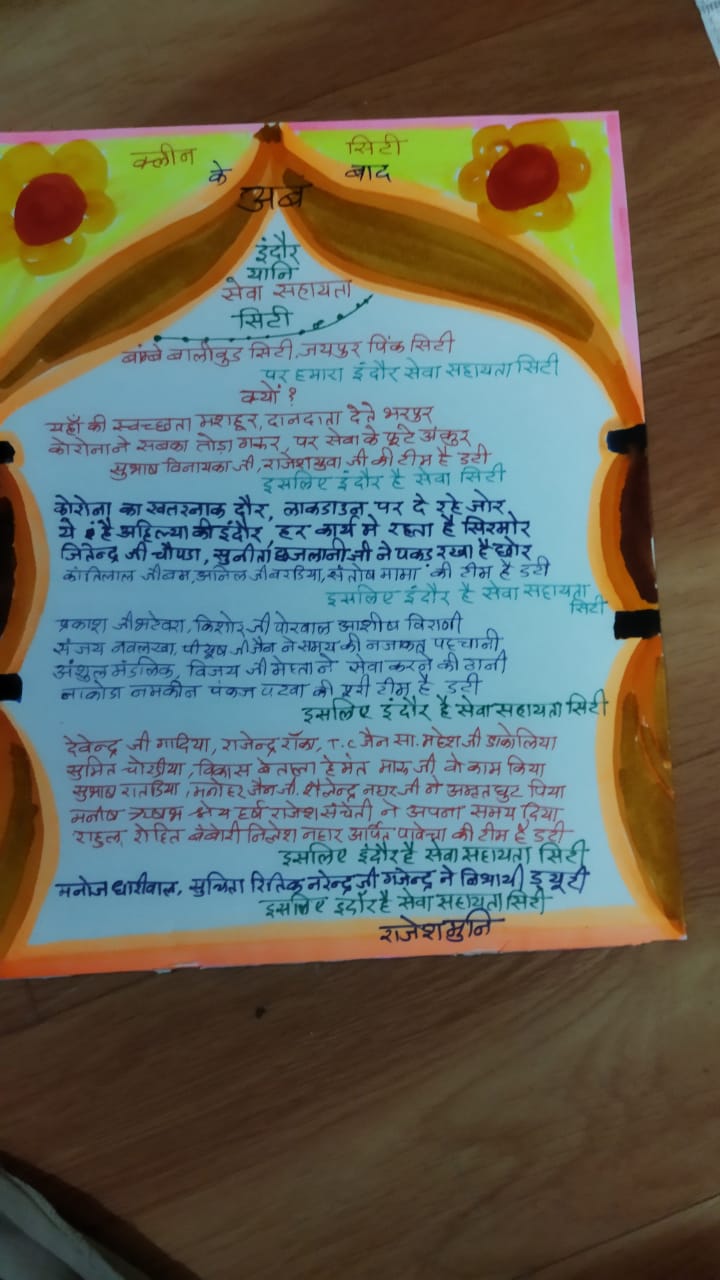 क्लीन सिटी
के बाद
अब
इंदौर
यानि
सेवा सहायता
सिटी
बॉम्बे बालीवुड सिटी, जयपुर पिंक सिटी
पर हमारा इंदौर सेवा सहायता सिटी
क्यों ?
यहाँ की स्वच्छता मशहूर, दानदाता देते भरपुर
कोरोना ने सबका तोड़ा गरूर, पर सेवा के फूटे अंकुर
सुभाष विनायका जी, राजेश युवा जी की टीम है डटी
इसलिए इंदौर है सेवा सिटी
कोरोना का खतरनाक दौर, लाकडाउन पर दे रहे जोर
ये है अहिल्या की इंदौर, हर कार्य मे रहता है सिरमोर
जितेन्द्र जी चौपडा, सुनीता छजलानी जी ने पकड रखा है छोर
कांतिलाल जी बम, अनिल जी बरडिया, संतोष मामा की टीम है डटी
इसलिए इंदौर है सेवा सहायता
सिटी
प्रकाश जी भटेवरा, किशोर जी पोरवाल आशीष विराणी
संजय नवलखा, पीयूष जी जैन ने समय की नजाकत पहचानी
अंशुल मंडलिक, विजय जी मेहता ने सेवा करने की ठानी
नाकोडा नमकीन पंकज पटवा की पूरी टीम है डटी
इसलिए इंदौर है सेवा सहायता सिटी
देवेन्द्र जी गादिया, राजेन्द्र रॉका, T.C जैन सा. महेश जी डाकोलिया
सुमित चोरडीया, विकास बेताला हेमंत मारू जी ने काम किया
सुभाष रातडिया, मनोहर जैन जी, शैलेन्द्र नाहर जी ने अमृत घुट पिया
मनीष ऋषभ श्रेय हर्ष राजेश संचेती ने अपना समय दिया
राहुल, रोहित निलेश नहार अर्पित पावेचा की टीम है डटी
इसलिए इंदौर है सेवा सहायता सिटी
मनोज धारीवाल, सुचिता रितिक नरेन्द्र जी गजेन्द्र ने निभायी ड्यूटी
इसलिए इंदौर है सेवा सहायता सिटी
राजेश मुनि